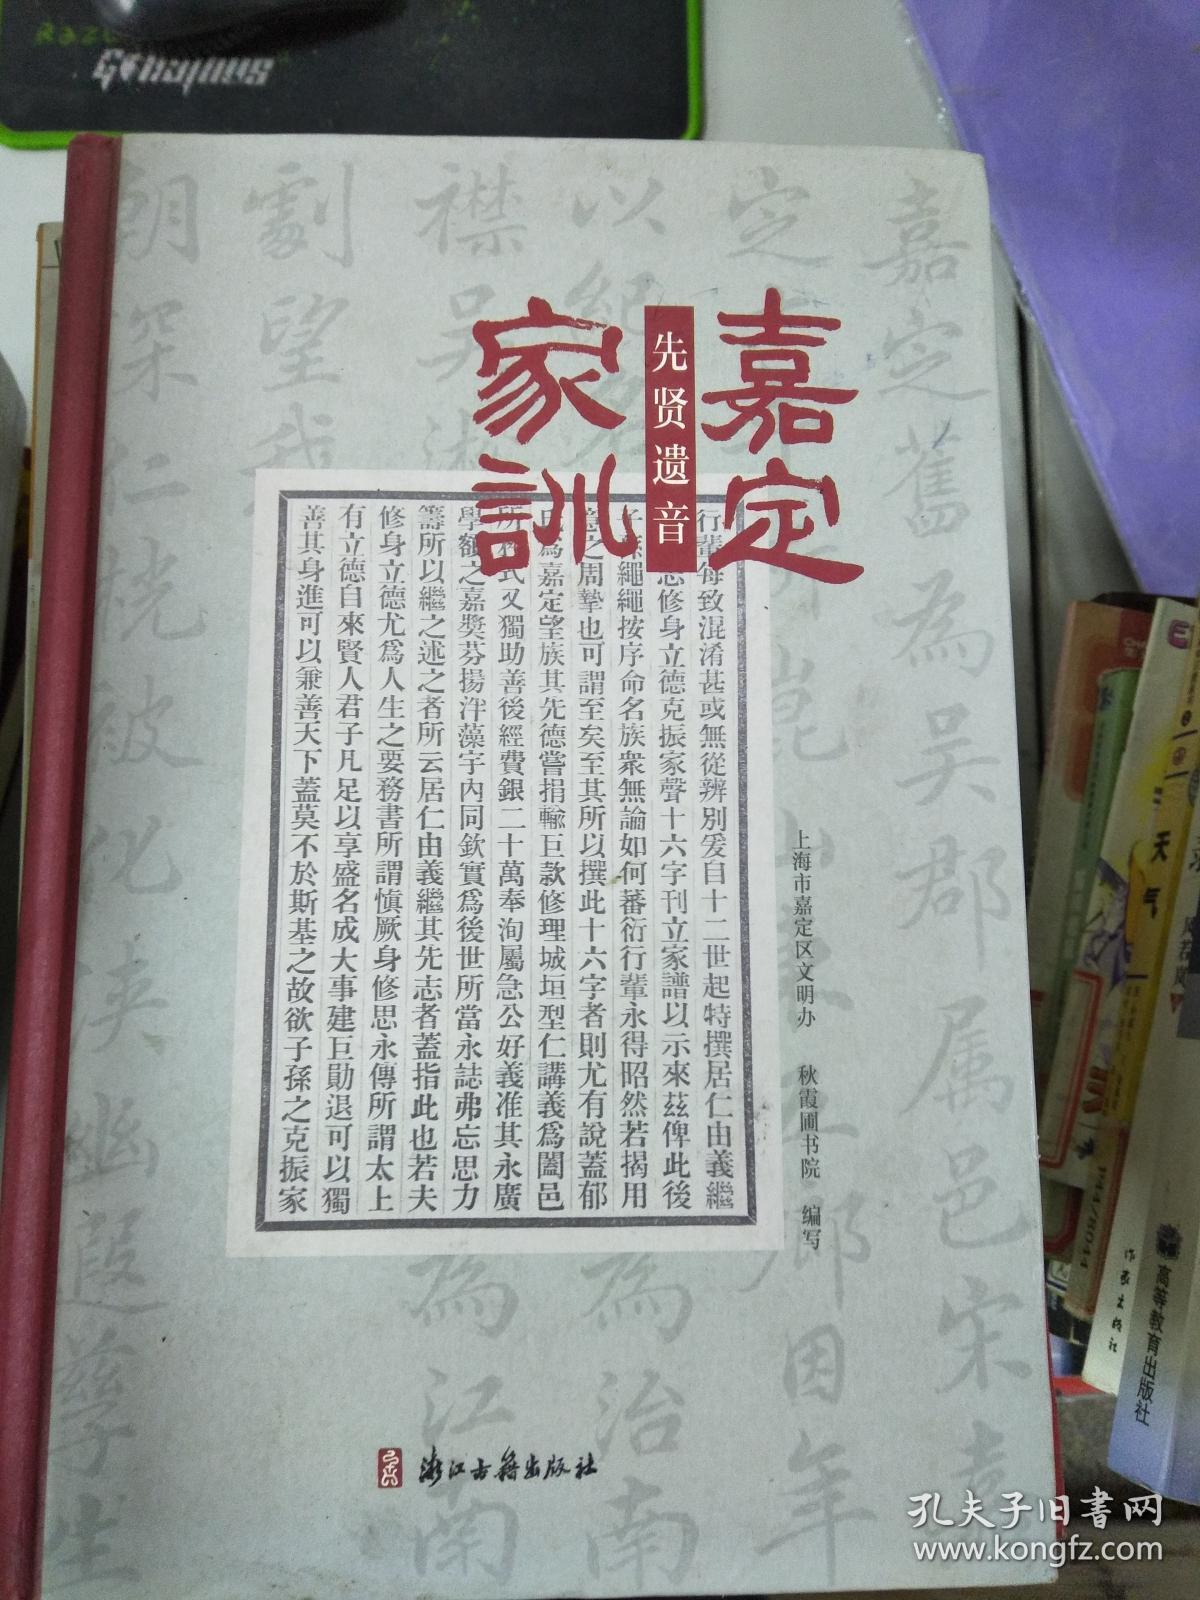 嘉定
先贤遗音
家訓
行輩每致混淆甚或無從辨別爰自十二世起特撰居仁由義繼
志修身立德克振家聲十六字刊立家譜以示來茲俾此後
子孫繩繩按序命名族衆無論如何蕃衍行輩永得昭然若揭用
意之周摯也可謂至矣至其所以撰此十六字者則尤有說蓋郁
氏爲嘉定望族其先德嘗捐輸巨款修理城垣型仁講義爲闔邑
所矜式又獨助善後經費銀二十萬奉洵屬急公好義准其永廣
學額之嘉獎芬揚泮藻宇內同欽實爲後世所當永誌弗忘思力
籌所以繼之述之者所云居仁由義繼其先志者蓋指此也若夫
修身立德尤爲人生之要務書所謂慎厥身修思永傳所謂太上
有立德自來賢人君子凡足以享盛名成大事建巨勛退可以獨
善其身進可以兼善天下蓋莫不於斯基之故欲子孫之克振家
上海市嘉定区文明办 秋霞圃书院 编写
浙江古籍出版社
嘉定舊為吳郡属邑宋嘉
定
因年
以紀
為治南
襟吳淞
為江南
劃望我
朝深仁
被化浹幽遐
生
天气
作家出版社
高等教育出版社
孔夫子旧書网
www.kongfz.com